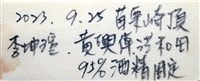 2023. 9.25 苗栗崎頂
李坤瑄. 黃興倬 洪和田
95% 酒精固定